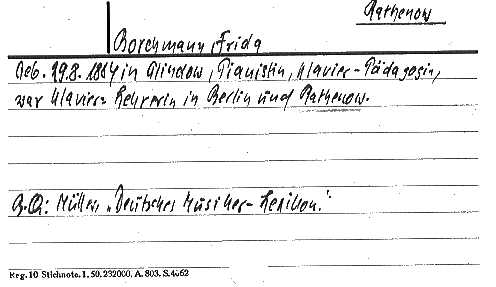 Rathenow
Borchmann, Frida
Geb. 19.8. 1864 in Glindow, Pianistin, Klavier-Pädagogin,
war Klavier-Lehrerin in Berlin und Rathenow.
Müller, „Deutsches Musiker-Lexikon."
Reg. 10 Stichnote. 1. 50. 232000. A. 803. S. 4662